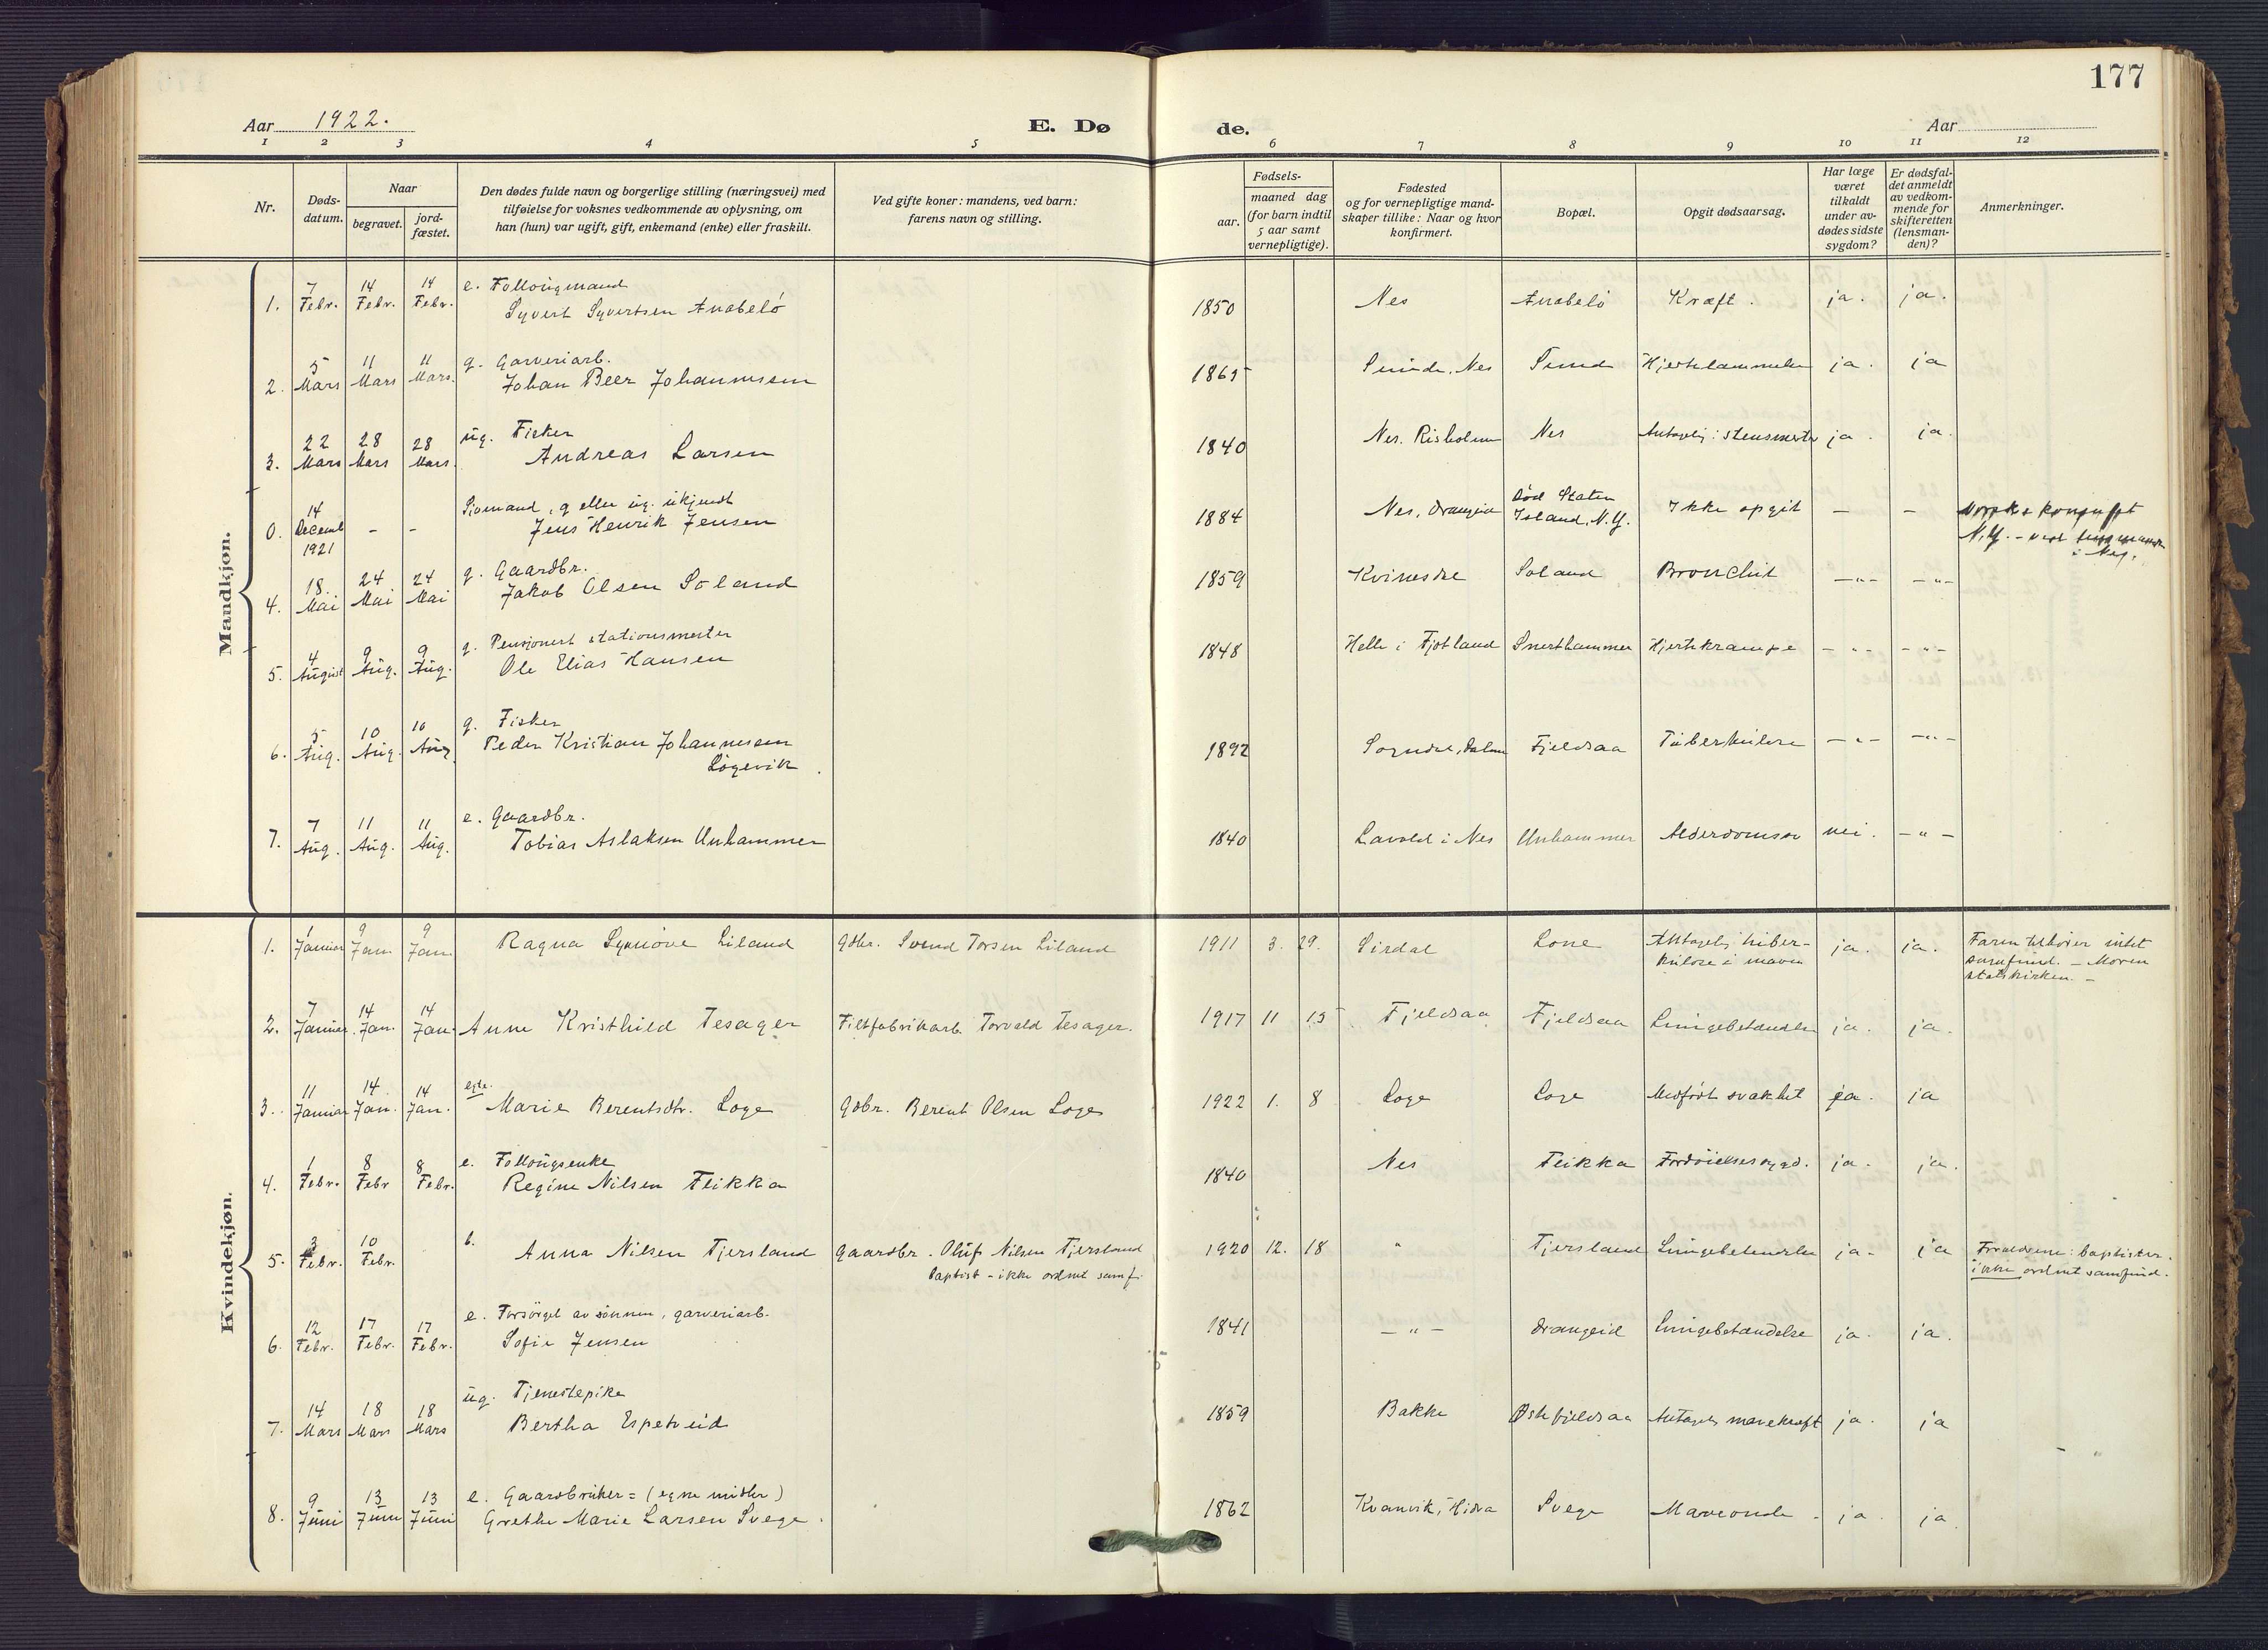 177
Aar 1922.
E. Dø
de.
Aar
1 2 3 4 5 6 7 8 9 10 11 12
Nr.
Døds-
datum.
Naar
begravet.
jord-
fæstet.
Den dødes fulde navn og borgerlige stilling (næringsvei) med
tilføielse for voksnes vedkommende av oplysning, om
han (hun) var ugift, gift, enkemand (enke) eller fraskilt.
Ved gifte koner: mandens, ved barn:
farens navn og stilling.
Fødsels-
aar.
maaned dag
(for barn indtil
5 aar samt
vernepligtige).
Fødested
og for vernepligtige mand-
skaper tillike: Naar og hvor
konfirmert.
Bopæl.
Opgit dødsaarsag.
Har læge
været
tilkaldt
under av-
dødes sidste
sygdom?
Er dødsfal-
det anmeldt
av vedkom-
mende for
skifteretten
(lensman-
den)?
Anmerkninger.
Mandkjøn.
7 14 14 e. Follougmand
1. Febr. Febr. Febr. Syvert Syvertsen Anabelö 1850 Nes Anabelö Kræft. ja. ja.
5 11 11 g. Garveriarb.
2. Mars Mars Mars. Johan Beer Johannessen 1865 Sunde, Nes Sund ja. ja
22 28 28 ug. Fisker
3. Mars Mars Mars. Andreas Larsen 1840 Nes. Risholm Nes ja. ja.
14 Sjömand, g eller ug. ukjendt Död Staten
0. Decemb - - Jens Henrik Jensen 1884 Nes, Drangeid Island, N.Y. Ikke opgit - - norske konsulat
1921 N.Y. -
i Nes.
18. 24 24 g. Gaardbr.
4. Mai Mai Mai Jakob Olsen Soland 1859 Kvinesdal Soland Bronchit -"- -"-
4 9 9 g. Pensjonert stationsmester
5. August Aug. Aug. Ole Elias Hansen 1848 Helle i Fjotland Snerthammer Hjertekrampe -"- -"-
5 10 10 g. Fisker
6. Aug. Aug. Aug Peder Kristian Johannessen 1892 Sogndal, Dalene Fjeldsaa Tuberkulose -"- -"-
Lögevik.
7 11 11 e. Gaardbr.
7. Aug. Aug. Aug. Tobias Aslaksen Unhammer 1840 Lavold i Nes Unhammer Alderdomssv nei. -"-
Kvindekjøn.
1 9 9
1. Januar Jan. Jan. Ragna Synnöve Liland Gdbr. Svend Torsen Liland 1911 3. 29. Sirdal Lone Antagelig tuber- ja. ja. Faren tilhører intet
kulose i maven samfund. - Moren
statskirken. -
7 14 14
2. Januar Jan. Jan. Anne Kristhild Tesager Filtfabrikarb. Torvald Tesager. 1917 11 15 Fjeldsaa Fjeldsaa Lungebetændelse ja. ja.
11 14 14 egte.
3. Januar Jan. Jan. Marie Berentsdtr. Loge Gdbr. Berent Olsen Loge 1922 1. 8 Loge Loge Medfödt svakhet ja. ja
1 8 8 e. Follougsenke
4. Febr. Febr Febr. Regine Nilsen Fleikka 1840 Nes Fleikka Fordöielsessygd. ja. ja.
3 10 b.
5. Febr. Febr. Anna Nilsen Tjersland Gaardbr. Oluf Nilsen Tjersland 1920 12. 18 " Tjersland Lungebetændelse ja. ja Forældrene: baptister.
Baptist - ikke ordnet samf. ikke ordnet samfund.
12 17 17 e. Forsörget av sönnen, garveriarb.
6. Febr. Febr. Febr. Sofie Jensen 1841 -"- Drangeid Lungebetændelse ja. ja.
14 18 18 ug. Tjenestepike
7. Mars Mars Mars Bertha Espetveid 1859 Bakke Østefjeldsaa Antagelig mavekræft ja. ja
9 13 13 e. Gaardbruker= (egne midler)
8. Juni Juni Juni Grethe Marie Larsen Svege. 1862 Kvanvik, Hidra Svege Maveonde. ja. ja.